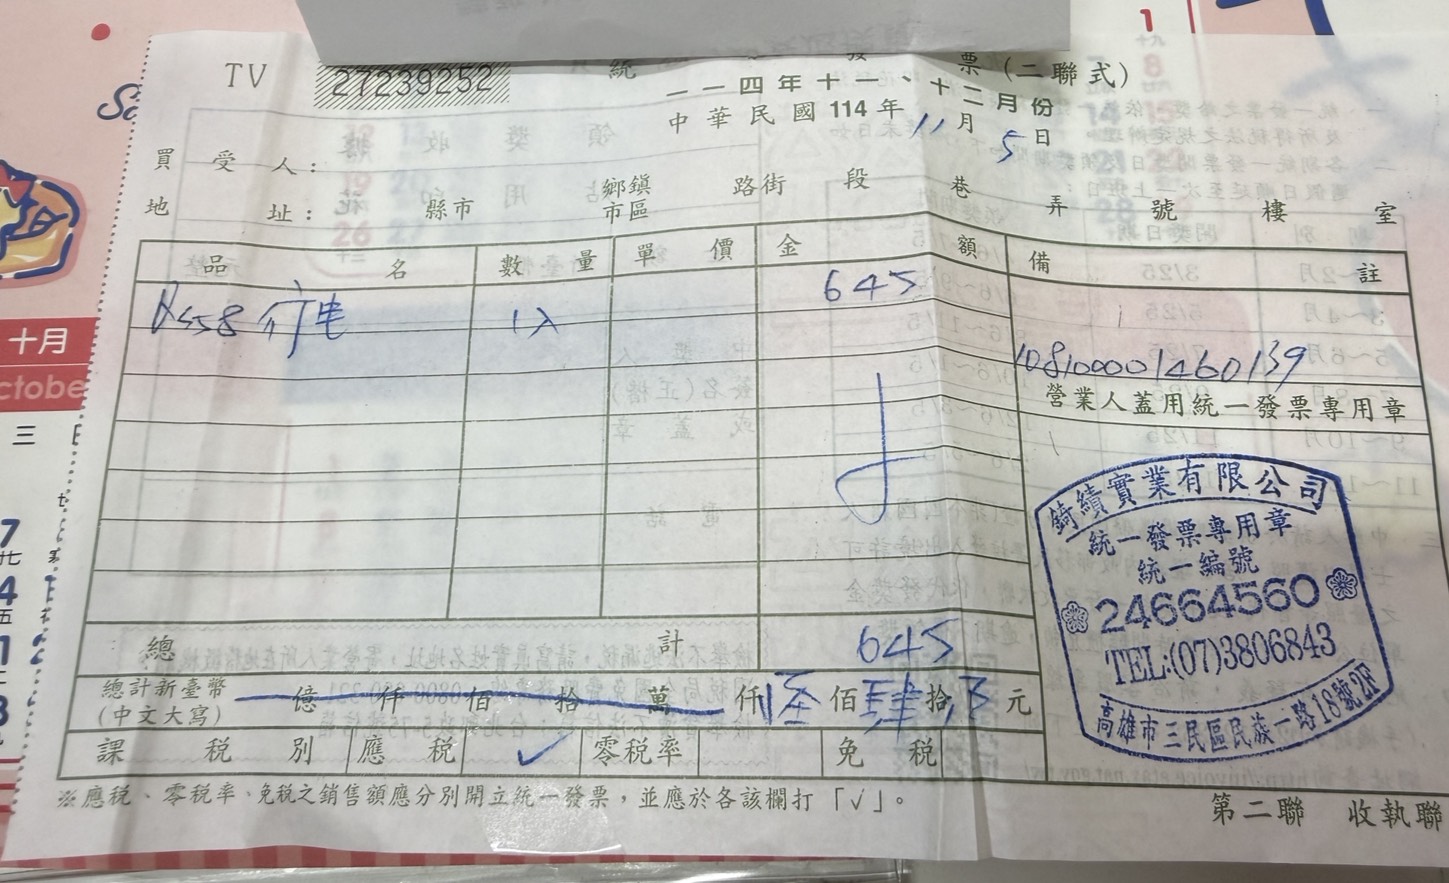 TV 27239252 統 一 發 票 (二聯式)
一一四年十一、十二月份
中華民國114年11月5日
買受人：
地址： 縣市 鄉鎮市區 路街 段 巷 弄 號 樓 室
品名 數量 單價 金額 備註
行电 1入 645
108100001460139
營業人蓋用統一發票專用章
錡績實業有限公司
統一發票專用章
統一編號
24664560
TEL:(07)3806843
高雄市三民區民族一路18號2F
總計 645
總計新臺幣(中文大寫) 億 仟 佰 拾 萬 仟 佰肆拾 元
課稅別 應稅 ✓ 零稅率 免稅
※應稅、零稅率、免稅之銷售額應分別開立統一發票，並應於各該欄打「✓」。
第二聯 收執聯
十月
三